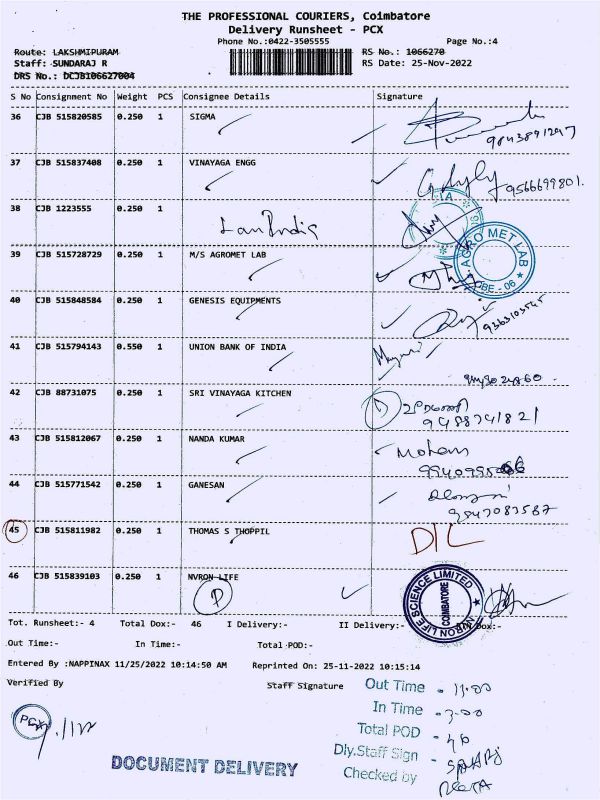 THE PROFESSIONAL COURIERS, Coimbatore
Delivery Runsheet - PCX
Phone No.:0422-3505555 Page No.:4
Route: LAKSHMIPURAM RS No.: 1066270
Staff: SUNDARAJ R RS Date: 25-Nov-2022
DRS No.: DCJB106627004
S No Consignment No Weight PCS Consignee Details Signature
36 CJB 515820585 0.250 1 SIGMA
9843891297
37 CJB 515837408 0.250 1 VINAYAGA ENGG
9566699801.
38 CJB 1223555 0.250 1 Lan India
39 CJB 515728729 0.250 1 M/S AGROMET LAB
AGRO MET LAB
CBE - 06
40 CJB 515848584 0.250 1 GENESIS EQUIPMENTS
9363103545
41 CJB 515794143 0.550 1 UNION BANK OF INDIA
42 CJB 88731075 0.250 1 SRI VINAYAGA KITCHEN
9488741821
43 CJB 515812067 0.250 1 NANDA KUMAR Mohan
44 CJB 515771542 0.250 1 GANESAN
9543083587
45 CJB 515811982 0.250 1 THOMAS S THOPPIL D/L
46 CJB 515839103 0.250 1 NVRON LIFE
NVRON LIFE SCIENCE LIMITED
COIMBATORE
Tot. Runsheet:- 4 Total Dox:- 46 I Delivery:- II Delivery:- Dox:-
Out Time:- In Time:- Total POD:-
Entered By :NAPPINAX 11/25/2022 10:14:50 AM Reprinted On: 25-11-2022 10:15:14
Verified By Staff Signature
Out Time - 11.00
In Time - 3.00
Total POD - 46
Dly.Staff Sign -
Checked by
PCX
DOCUMENT DELIVERY